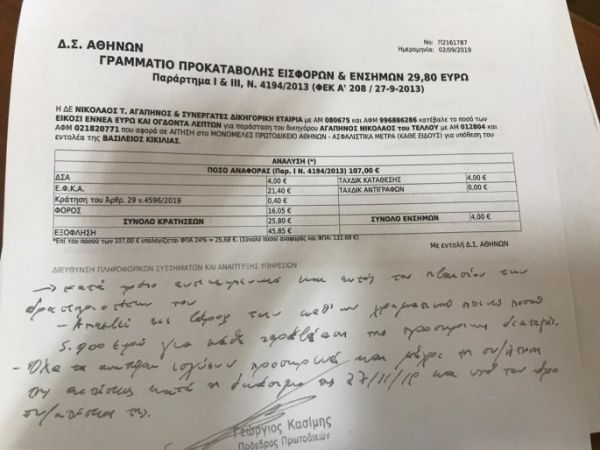 Δ.Σ. ΑΘΗΝΩΝ
Νο: Π2161787
Ημερομηνία: 02/09/2019
ΓΡΑΜΜΑΤΙΟ ΠΡΟΚΑΤΑΒΟΛΗΣ ΕΙΣΦΟΡΩΝ & ΕΝΣΗΜΩΝ 29,80 ΕΥΡΩ
Παράρτημα Ι & ΙΙΙ, Ν. 4194/2013 (ΦΕΚ Α' 208 / 27-9-2013)
Η ΔΕ ΝΙΚΟΛΑΟΣ Τ. ΑΓΑΠΗΝΟΣ & ΣΥΝΕΡΓΑΤΕΣ ΔΙΚΗΓΟΡΙΚΗ ΕΤΑΙΡΙΑ με ΑΜ 080675 και ΑΦΜ 996886286 κατέβαλε το ποσό των
ΕΙΚΟΣΙ ΕΝΝΕΑ ΕΥΡΩ ΚΑΙ ΟΓΔΟΝΤΑ ΛΕΠΤΩΝ για παράσταση του δικηγόρου ΑΓΑΠΗΝΟΣ ΝΙΚΟΛΑΟΣ του ΤΕΛΛΟΥ με ΑΜ 012804 και
ΑΦΜ 021820771 που αφορά σε ΑΙΤΗΣΗ στο ΜΟΝΟΜΕΛΕΣ ΠΡΩΤΟΔΙΚΕΙΟ ΑΘΗΝΩΝ - ΑΣΦΑΛΙΣΤΙΚΑ ΜΕΤΡΑ (ΚΑΘΕ ΕΙΔΟΥΣ) για υπόθεση του
εντολέα της ΒΑΣΙΛΕΙΟΣ ΚΙΚΙΛΙΑΣ.
ΑΝΑΛΥΣΗ (*)
ΠΟΣΟ ΑΝΑΦΟΡΑΣ (Παρ. Ι Ν. 4194/2013) 107,00 €
ΔΣΑ 4,00 € ΤΑΧΔΙΚ ΚΑΤΑΘΕΣΗΣ 4,00 €
Ε.Φ.Κ.Α. 21,40 € ΤΑΧΔΙΚ ΑΝΤΙΓΡΑΦΩΝ 0,00 €
Κράτηση του Άρθρ. 29 ν.4596/2019 0,40 €
ΦΟΡΟΣ 16,05 €
ΣΥΝΟΛΟ ΚΡΑΤΗΣΕΩΝ 25,80 € ΣΥΝΟΛΟ ΕΝΣΗΜΩΝ 4,00 €
ΕΞΟΦΛΗΣΗ 45,85 €
*Επί του ποσού των 107,00 € υπολογίζεται ΦΠΑ 24% = 25,68 €. (Σύνολο ποσού αναφοράς και ΦΠΑ: 132,68 €)
Με εντολή Δ.Σ. ΑΘΗΝΩΝ
ΔΙΕΥΘΥΝΣΗ ΠΛΗΡΟΦΟΡΙΚΩΝ ΣΥΣΤΗΜΑΤΩΝ ΚΑΙ ΑΝΑΠΤΥΞΗΣ ΥΠΗΡΕΣΙΩΝ
κατά τρόπο και εντός του πλαισίου των
δραστηριοτήτων του
- Απειλεί εις βάρος των καθ'ων χρηματική ποινή ποσού
5.900 ευρώ για κάθε παράβαση της προσωρινής διαταγής.
- Όλα τα ανωτέρω ισχύουν προσωρινά και μέχρι τη συζήτηση
της αιτήσεως κατά τη δικάσιμο της 27/11/19 και υπό τον όρο
συζητήσεώς της.
Γεώργιος Κασίμης
Πρόεδρος Πρωτοδικών